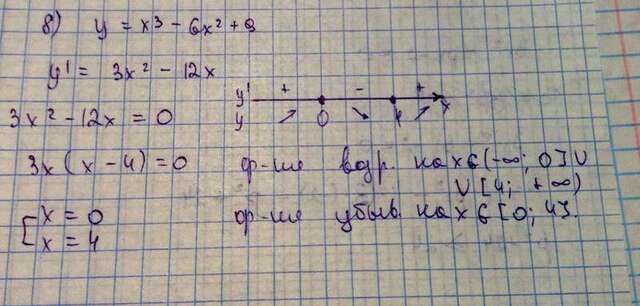 8) y = x³ - 6x² + 9
y' = 3x² - 12x
3x² - 12x = 0
3x(x - 4) = 0
[x = 0
x = 4
y' + - + x
y ↗ 0 ↘ 4 ↗
ф-ция возр. на x ∈ (-∞; 0] ∪
∪ [4; +∞)
ф-ция убыв. на x ∈ [0; 4].